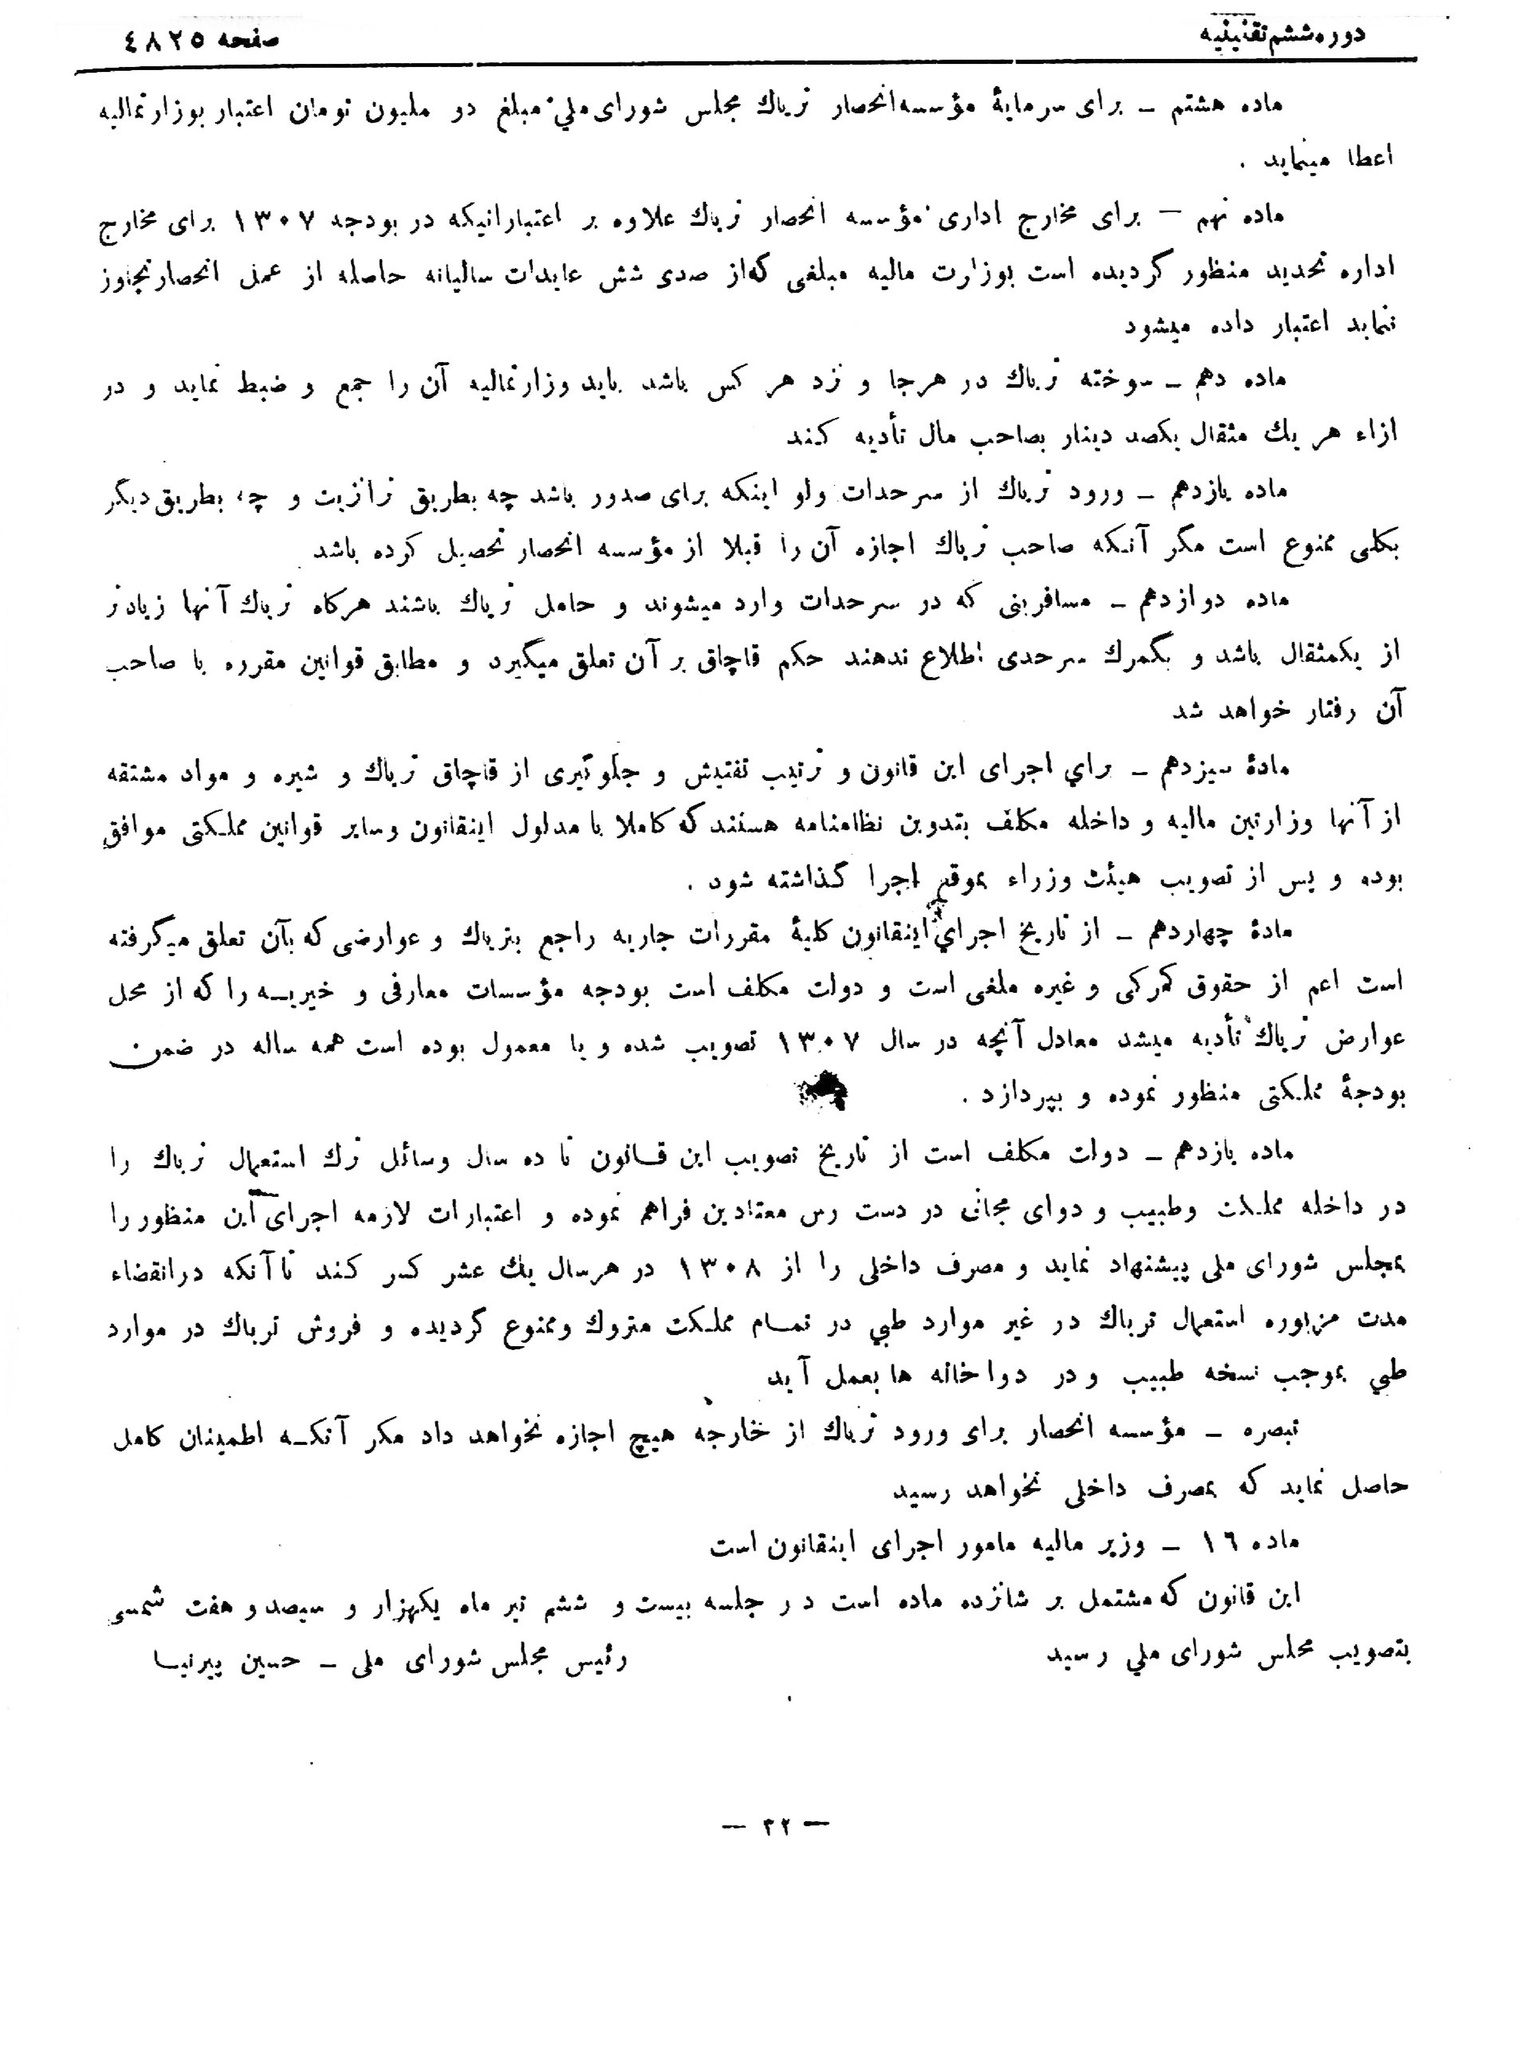 دوره ششم تقنینیه
صفحه ٤٨٢٥
ماده هشتم – برای سرمایهٔ مؤسسه انحصار تریاك مجلس شورای ملي مبلغ دو ملیون تومان اعتبار بوزارتمالیه
اعطا مینماید .
ماده نهم – برای مخارج اداری مؤسسه انحصار تریاك علاوه بر اعتباراتیکه در بودجه ۱۳۰۷ برای مخارج
اداره تحدید منظور گردیده است بوزارت مالیه مبلغی که از صدی شش عایدات سالیانه حاصله از عمل انحصار تجاوز
ننماید اعتبار داده میشود
ماده دهم – سوخته تریاك در هرجا و نزد هر کس باشد باید وزارتمالیه آن را جمع و ضبط نماید و در
ازاء هر یك مثقال یکصد دینار بصاحب مال تأدیه کند
ماده یازدهم – ورود تریاك از سرحدات ولو اینکه برای صدور باشد چه بطریق ترانزیت و چه بطریق دیگر
بکلی ممنوع است مگر آنکه صاحب تریاك اجازه آن را قبلا از مؤسسه انحصار تحصیل کرده باشد
ماده دوازدهم – مسافرینی که در سرحدات وارد میشوند و حامل تریاك باشند هرکاه تریاك آنها زیادتر
از یکمثقال باشد و بگمرك سرحدی اطلاع ندهند حکم قاچاق بر آن تعلق میگیرد و مطابق قوانین مقرره با صاحب
آن رفتار خواهد شد
مادهٔ سیزدهم – براي اجرای این قانون و ترتیب تفتیش و جلوگیری از قاچاق تریاك و شیره و مواد مشتقه
از آنها وزارتین مالیه و داخله مکلف بتدوین نظامنامه هستند که کاملا با مدلول اینقانون وسایر قوانین مملکتی موافق
بوده و پس از تصویب هیئت وزراء بموقع اجرا گذاشته شود .
مادهٔ چهاردهم – از تاریخ اجراي اینقانون کلیهٔ مقررات جاریه راجع بتریاك و عوارضی که بآن تعلق میگرفته
است اعم از حقوق گمرکی و غیره ملغی است و دولت مکلف است بودجه مؤسسات معارفی و خیریه را که از محل
عوارض تریاك تأدیه میشد معادل آنچه در سال ۱۳۰۷ تصویب شده و یا معمول بوده است همه ساله در ضمن
بودجهٔ مملکتی منظور نموده و بپردازد .
ماده یازدهم – دولت مکلف است از تاریخ تصویب این قانون تا ده سال وسائل ترك استعمال تریاك را
در داخله مملکت وطبیب و دوای مجانی در دست رس معتادین فراهم نموده و اعتبارات لازمه اجرای این منظور را
بمجلس شورای ملی پیشنهاد نماید و مصرف داخلی را از ۱۳۰۸ در هرسال یك عشر کسر کند تا آنکه درانقضاء
مدت مزبوره استعمال تریاك در غیر موارد طبي در تمام مملکت متروك وممنوع گردیده و فروش تریاك در موارد
طبي بموجب نسخه طبیب و در دواخانه ها بعمل آید
تبصره – مؤسسه انحصار برای ورود تریاك از خارجه هیچ اجازه نخواهد داد مکر آنکه اطمینان کامل
حاصل نماید که بمصرف داخلی نخواهد رسید
ماده ۱٦ – وزیر مالیه مامور اجرای اینقانون است
این قانون که مشتمل بر شانزده ماده است در جلسه بیست و ششم تیر ماه یکهزار و سیصد و هفت شمسی
بتصویب مجلس شورای ملي رسید
رئیس مجلس شورای ملی – حسین پیرنیا
— ۲۲ —